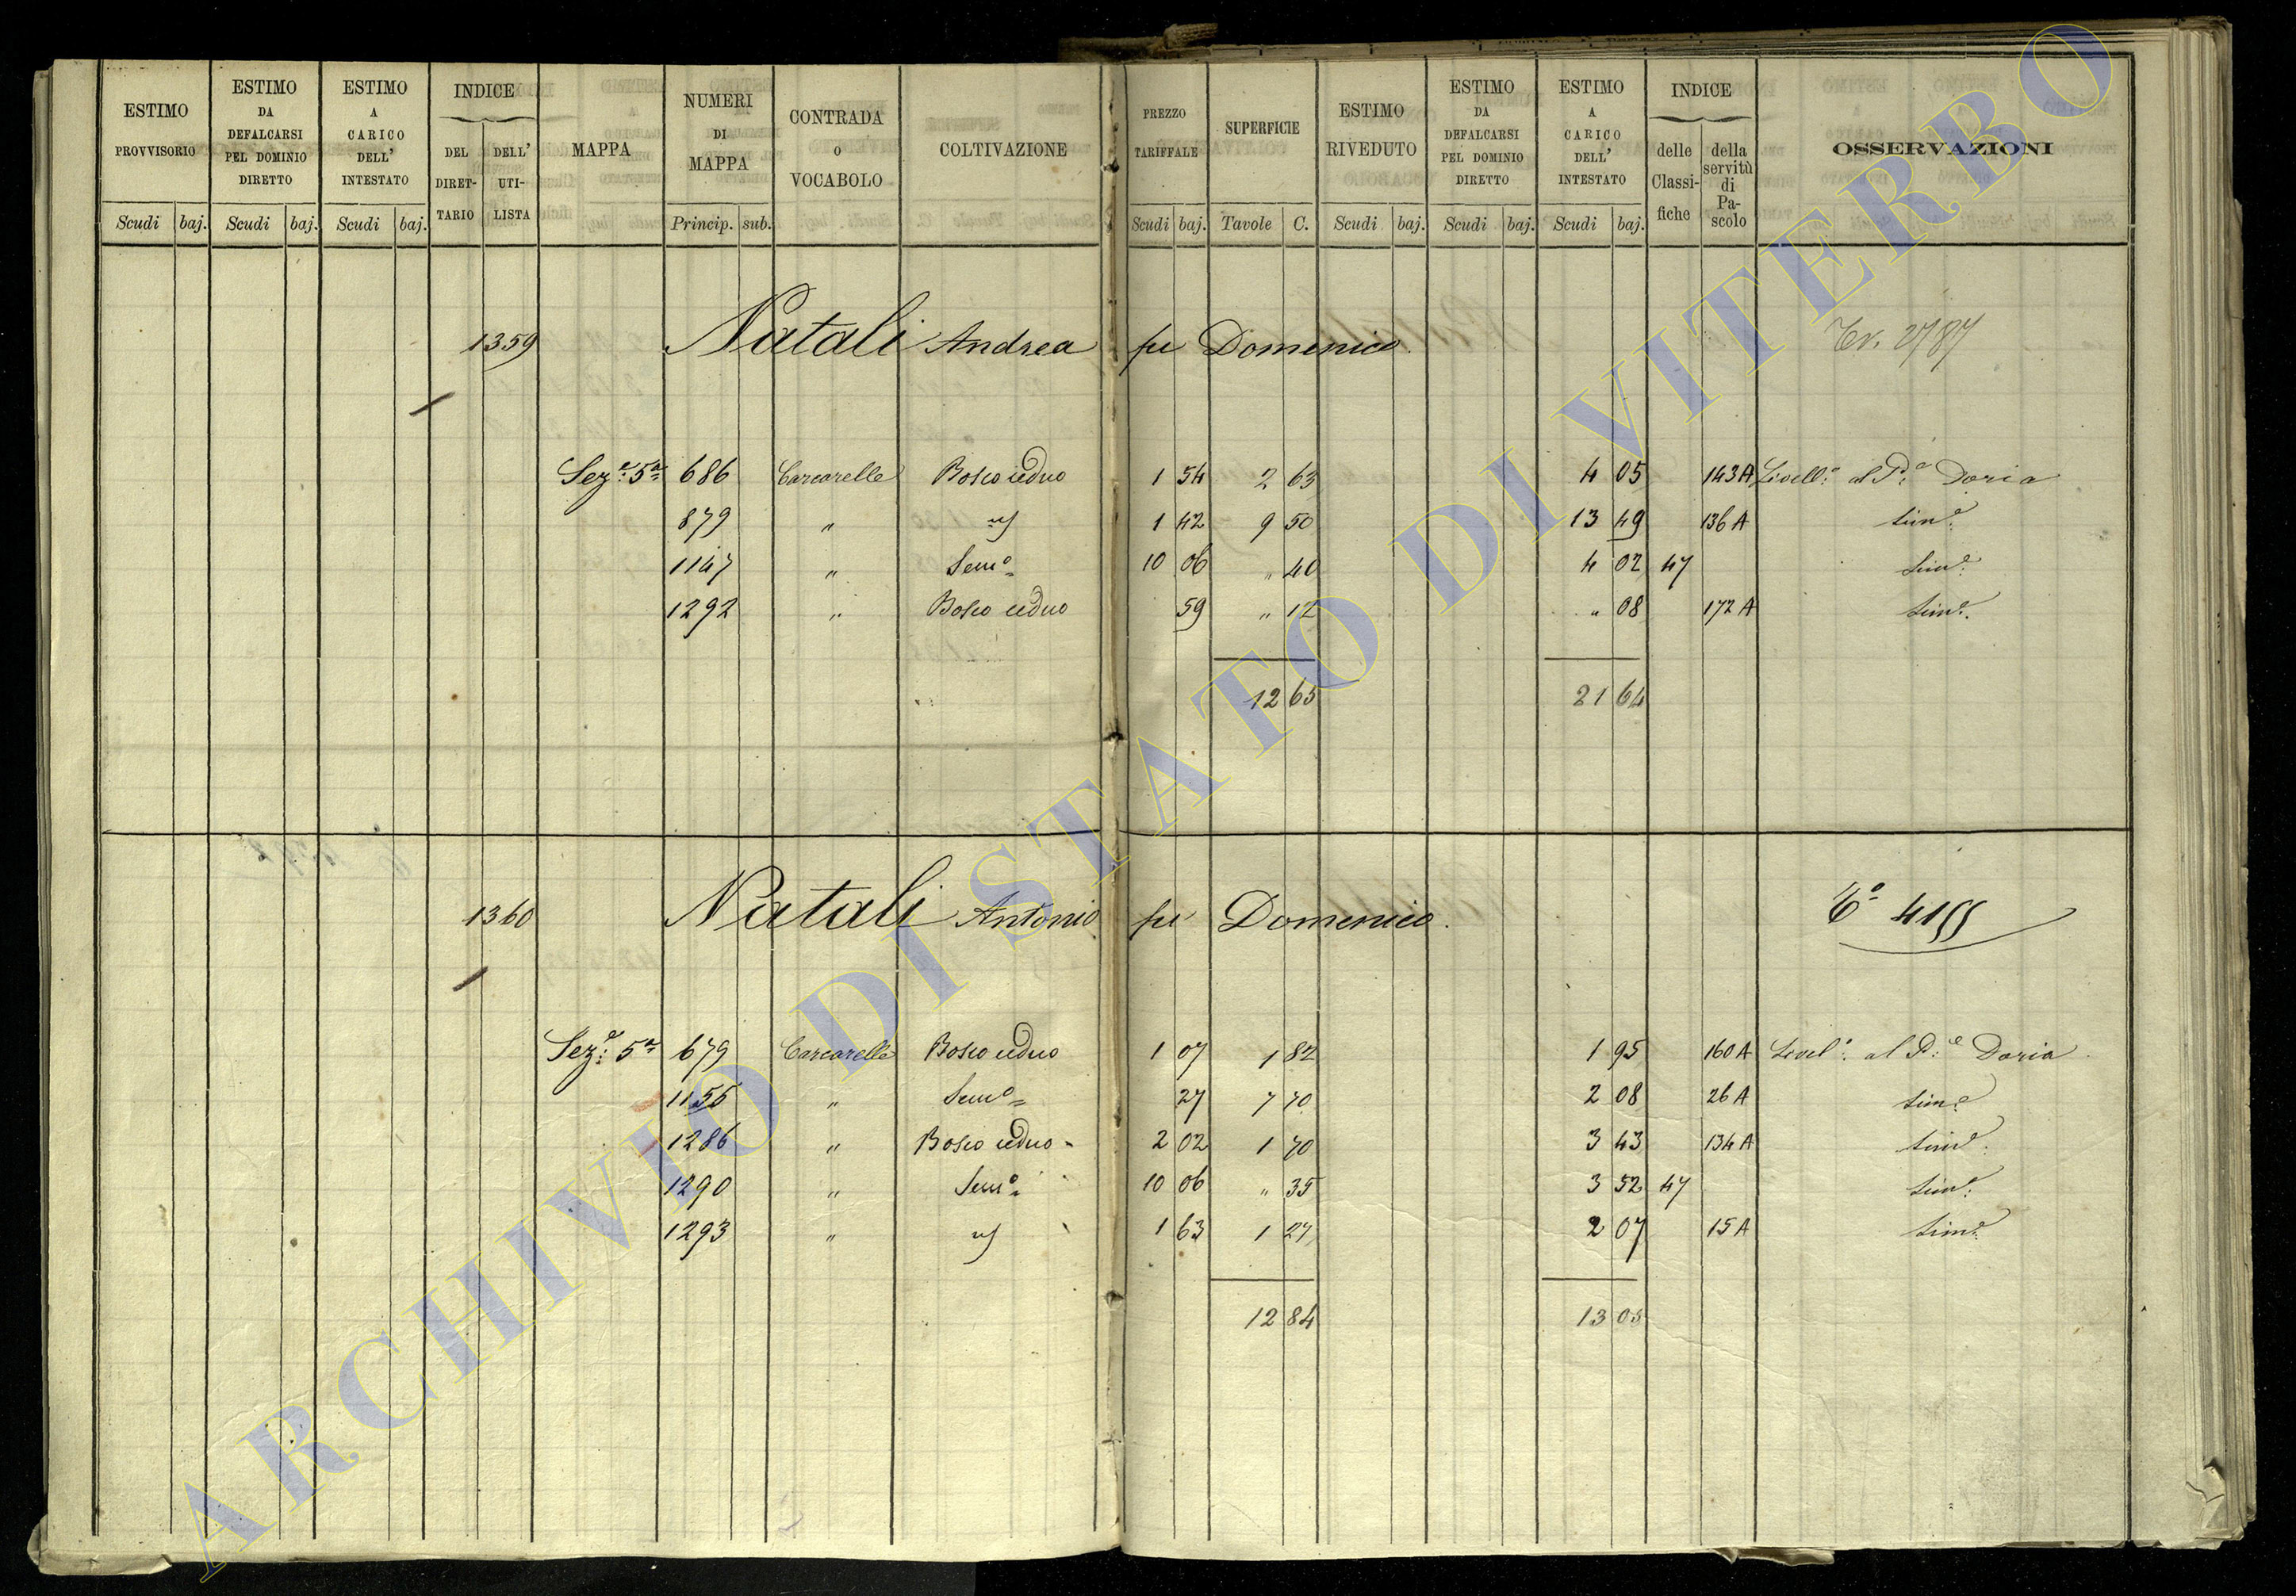 ESTIMO PROVVISORIO ESTIMO DA DEFALCARSI PEL DOMINIO DIRETTO ESTIMO A CARICO DELL' INTESTATO INDICE DEL DIRET-TARIO DELL' UTI-LISTA MAPPA NUMERI DI MAPPA CONTRADA O VOCABOLO COLTIVAZIONE PREZZO TARIFFALE SUPERFICIE ESTIMO RIVEDUTO ESTIMO DA DEFALCARSI PEL DOMINIO DIRETTO ESTIMO A CARICO DELL' INTESTATO INDICE delle Classi-fiche della servitù di Pa-scolo OSSERVAZIONI
Scudi baj. Scudi baj. Scudi baj. Princip. sub. Scudi baj. Tavole C. Scudi baj. Scudi baj. Scudi baj.
1359 Natali Andrea fu Domenico. 2787
Sez.e 5a 686 Carcarelle Bosco ceduo 1 54 2 63 4 05 143 A Livell.o al P.e Doria
879 " id 1 42 9 50 13 49 136 A Sim.e
1147 " Sem.o 10 06 " 40 4 02 47 Sim.e
1292 " Bosco ceduo 59 " 12 " 08 172 A Sim.e
12 65 21 64
1360 Natali Antonio fu Domenico. 4155
Sez.e 5a 679 Carcarelle Bosco ceduo 1 07 1 82 1 95 160 A Livel.o al P.e Doria
1155 " Sem.o 27 7 70 2 08 26 A Sim.e
1286 " Bosco ceduo 2 02 1 70 3 43 134 A Sim.e
1290 " Sem.o 10 06 " 35 3 52 47 Sim.e
1293 " id 1 63 1 27 2 07 15 A Sim.e
12 84 13 05
ARCHIVIO DI STATO DI VITERBO